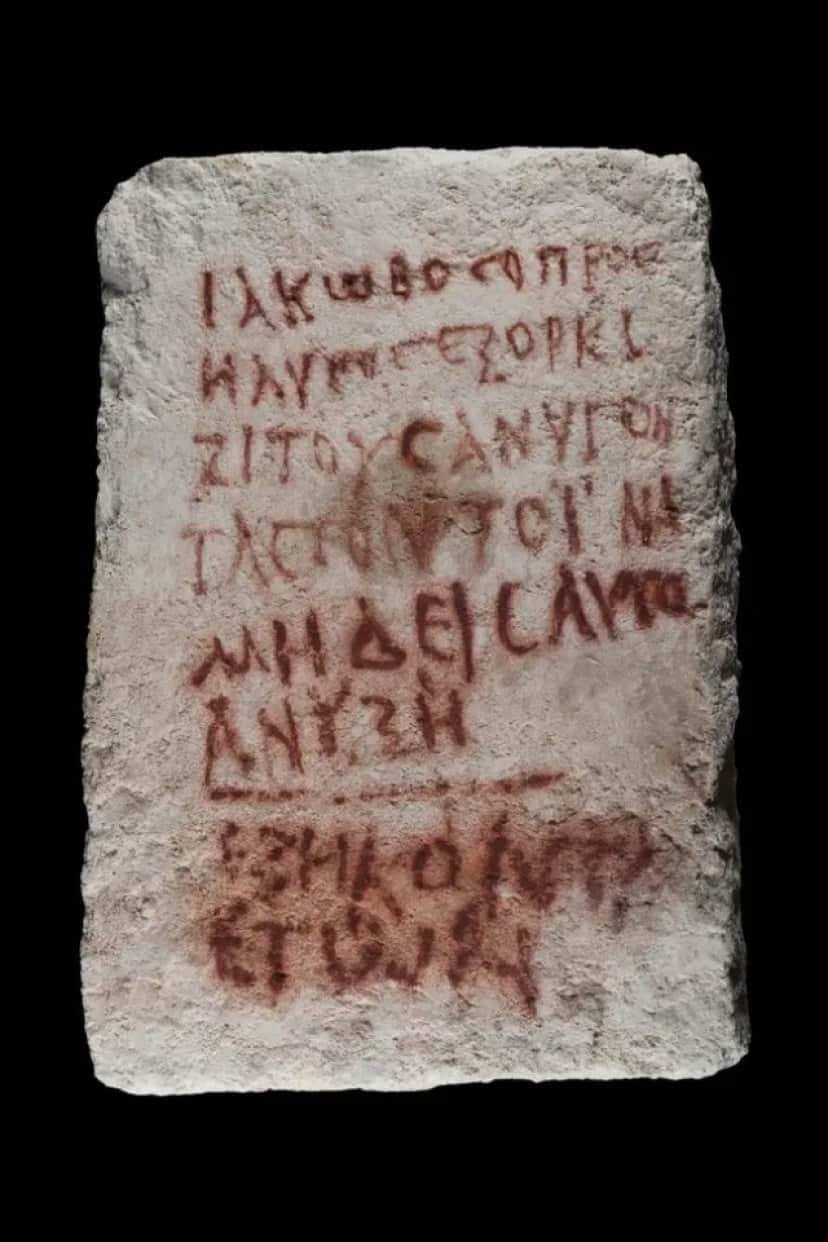 ΙΑΚΩΒΟCΟΠΡΟC
ΗΛΥΤΟCΕΞΟΡΚΙ
ΖΙΤΟΥCΑΝΥΓΟΝ
ΤΑCΤΟΥΤΟΙΝΑ
ΜΗΔΕΙCΑΥΤΟ
ΑΝΥΞΗ
ΕΞΗΚΟΝΤΑ
ΕΤΩΝ